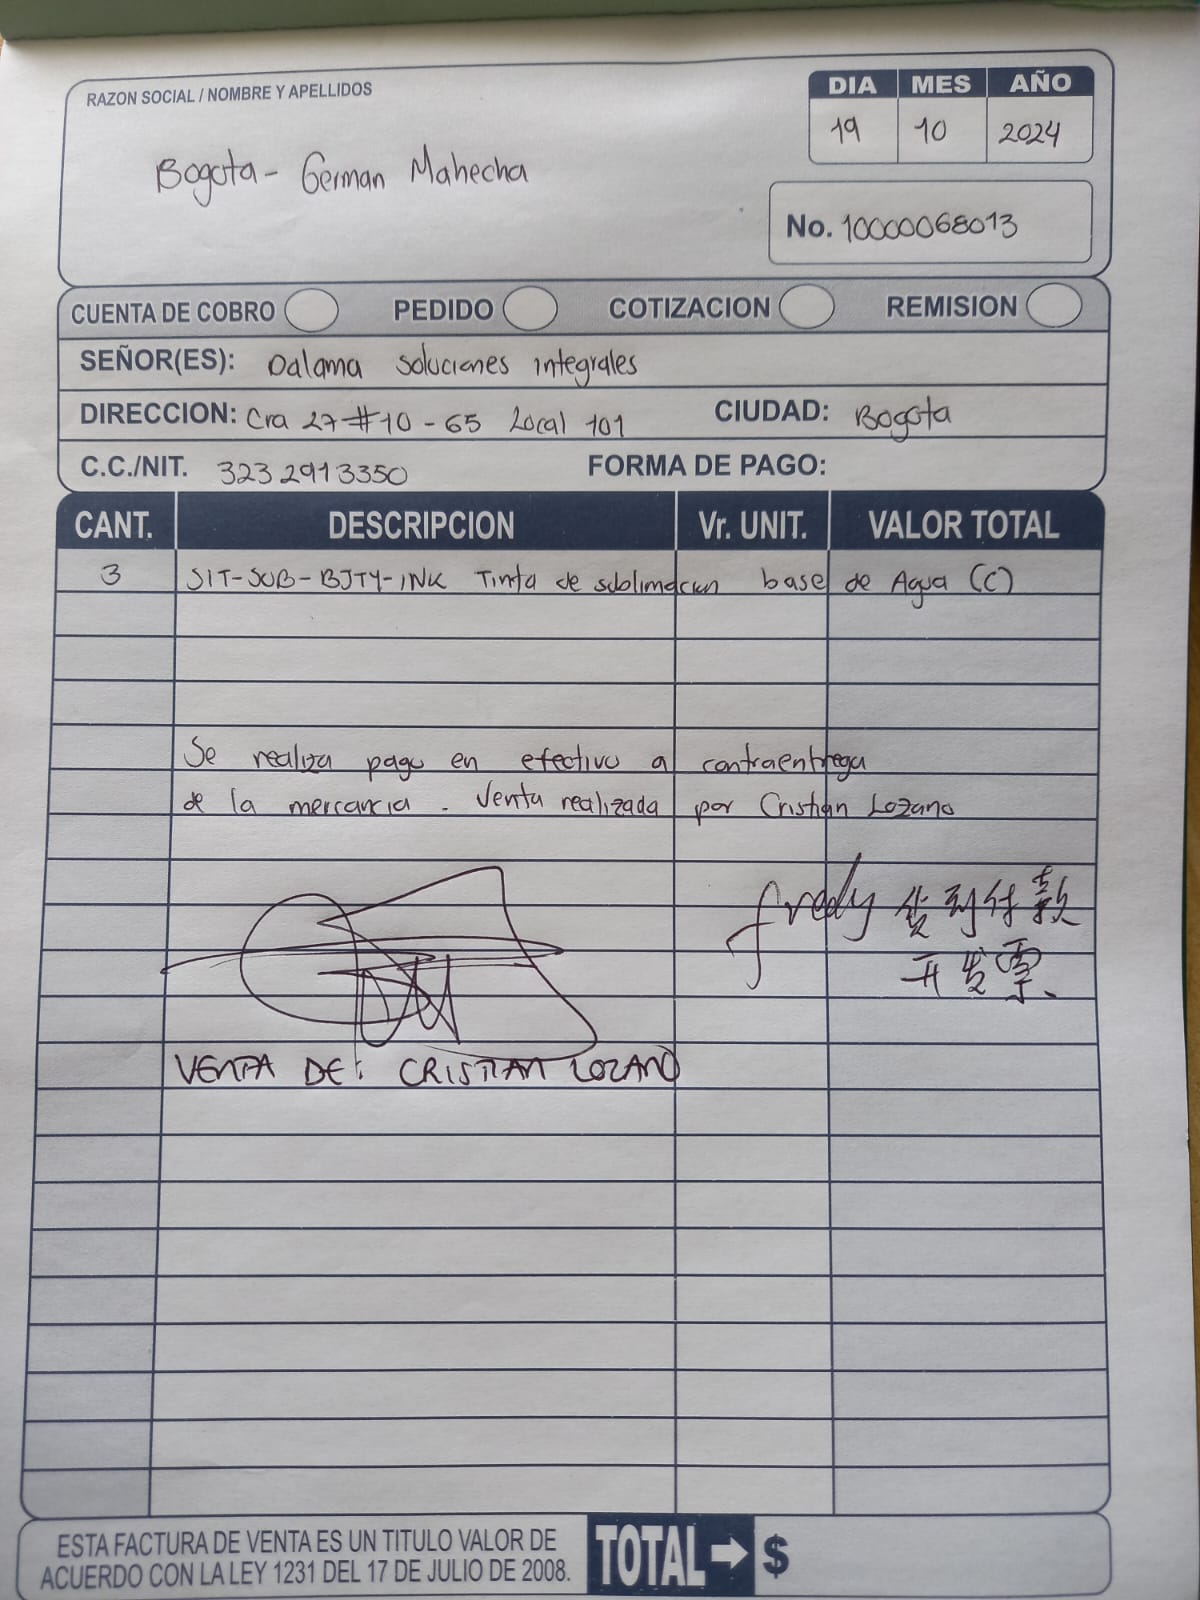 RAZON SOCIAL / NOMBRE Y APELLIDOS
DIA MES AÑO
19 10 2024
Bogota - German Mahecha
No. 10000068013
CUENTA DE COBRO PEDIDO COTIZACION REMISION
SEÑOR(ES): Dalama Soluciones integrales
DIRECCION: Cra 27 #10-65 Local 101 CIUDAD: Bogota
C.C./NIT. 3232913350 FORMA DE PAGO:
CANT. DESCRIPCION Vr. UNIT. VALOR TOTAL
3 SIT-SUB-BJTY-INK Tinta de sublimacion base de Agua (C)
Se realiza pago en efectivo a contraentrega
de la mercancia. Venta realizada por Cristian Lozano
fredy 货到付款
开发票.
VENTA DE: CRISTIAN LOZANO
ESTA FACTURA DE VENTA ES UN TITULO VALOR DE
ACUERDO CON LA LEY 1231 DEL 17 DE JULIO DE 2008.
TOTAL → $